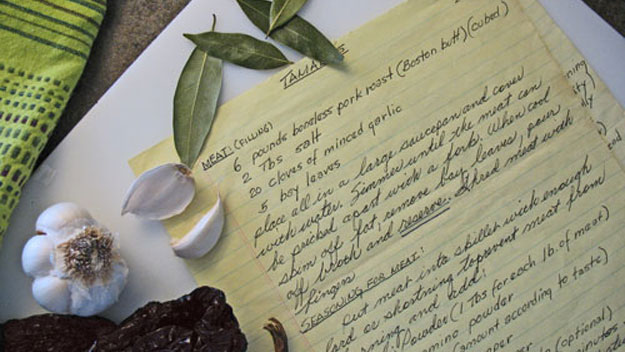 TAMALES
MEAT: (FILLING)
6 pounds boneless pork roast (Boston butt) (cubed)
2 Tbs salt
20 cloves of minced garlic
5 bay leaves
place all in a large saucepan and cover
with water. Simmer until the meat can
be pricked apart with a fork. When cool
skim off fat, remove bay leaves, pour
off broth and reserve. Shred meat with
fingers
SEASONING FOR MEAT:
Put meat into skillet with enough
lard or shortning to prevent meat from
burning and add:
Powder (1 Tbs for each lb. of meat)
powder
(amount according to taste)
(optional)
minutes